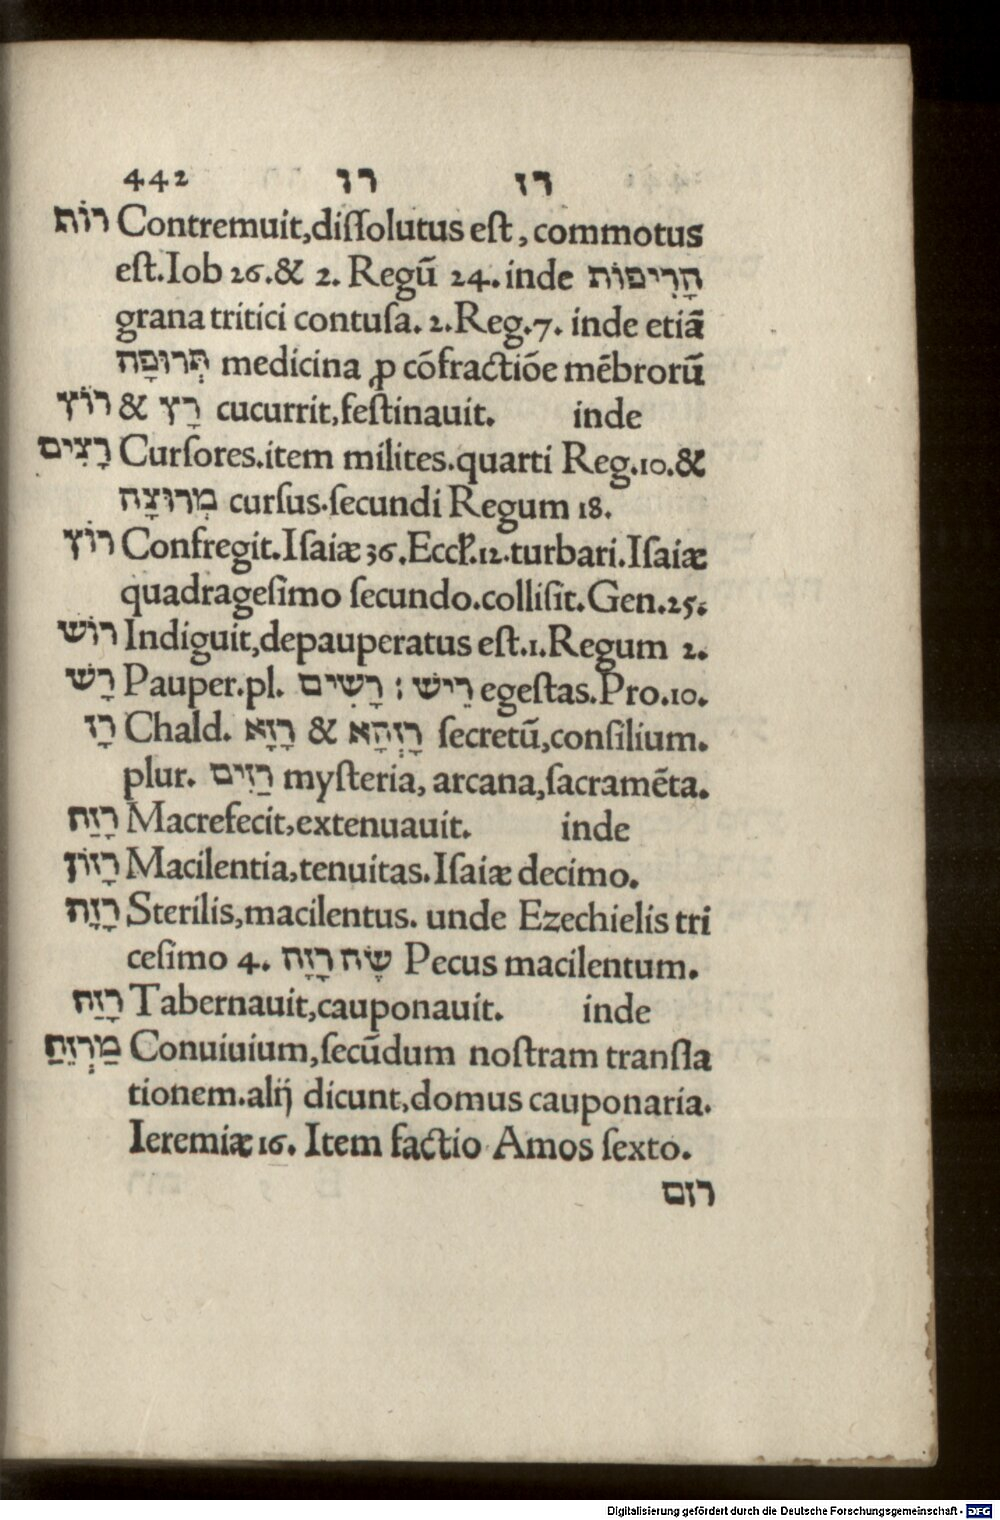 442 רו רז
רוֹת Contremuit,diſſolutus eſt, commotus
eſt.Iob 26.& 2. Regū 24. inde הָרִיפוֹת
grana tritici contuſa. 2.Reg.7. inde etiā
תְּרוּפָה medicina ꝓ cōfractiōe mēbrorū
רוֹץ & רָץ cucurrit,feſtinauit. inde
רָצִים Curſores.item milites.quarti Reg.10.&
מְרוּצָה curſus.ſecundi Regum 18.
רוֹץ Confregit.Iſaiæ 36.Eccł.12.turbari.Iſaiæ
quadrageſimo ſecundo.colliſit.Gen.25.
רוֹשׁ Indiguit,depauperatus eſt.1.Regum 2.
רָשׁ Pauper.pl. רָשִׁים : רֵישׁ egeſtas.Pro.10.
רָז Chald. רָזָא & רָזְהָא ſecretū,conſilium.
plur. רַזִים myſteria, arcana,ſacramēta.
רָזַח Macrefecit,extenuauit. inde
רָזוֹן Macilentia,tenuitas.Iſaiæ decimo.
רָזָה Sterilis,macilentus. unde Ezechielis tri
ceſimo 4. שֶׂה רָזָה Pecus macilentum.
רָזַח Tabernauit,cauponauit. inde
מַרְזֵחַ Conuiuium,ſecūdum noſtram tranſla
tionem.alij dicunt,domus cauponaria.
Ieremiæ 16. Item factio Amos ſexto.
רזם
Digitalisierung gefördert durch die Deutsche Forschungsgemeinschaft - DFG